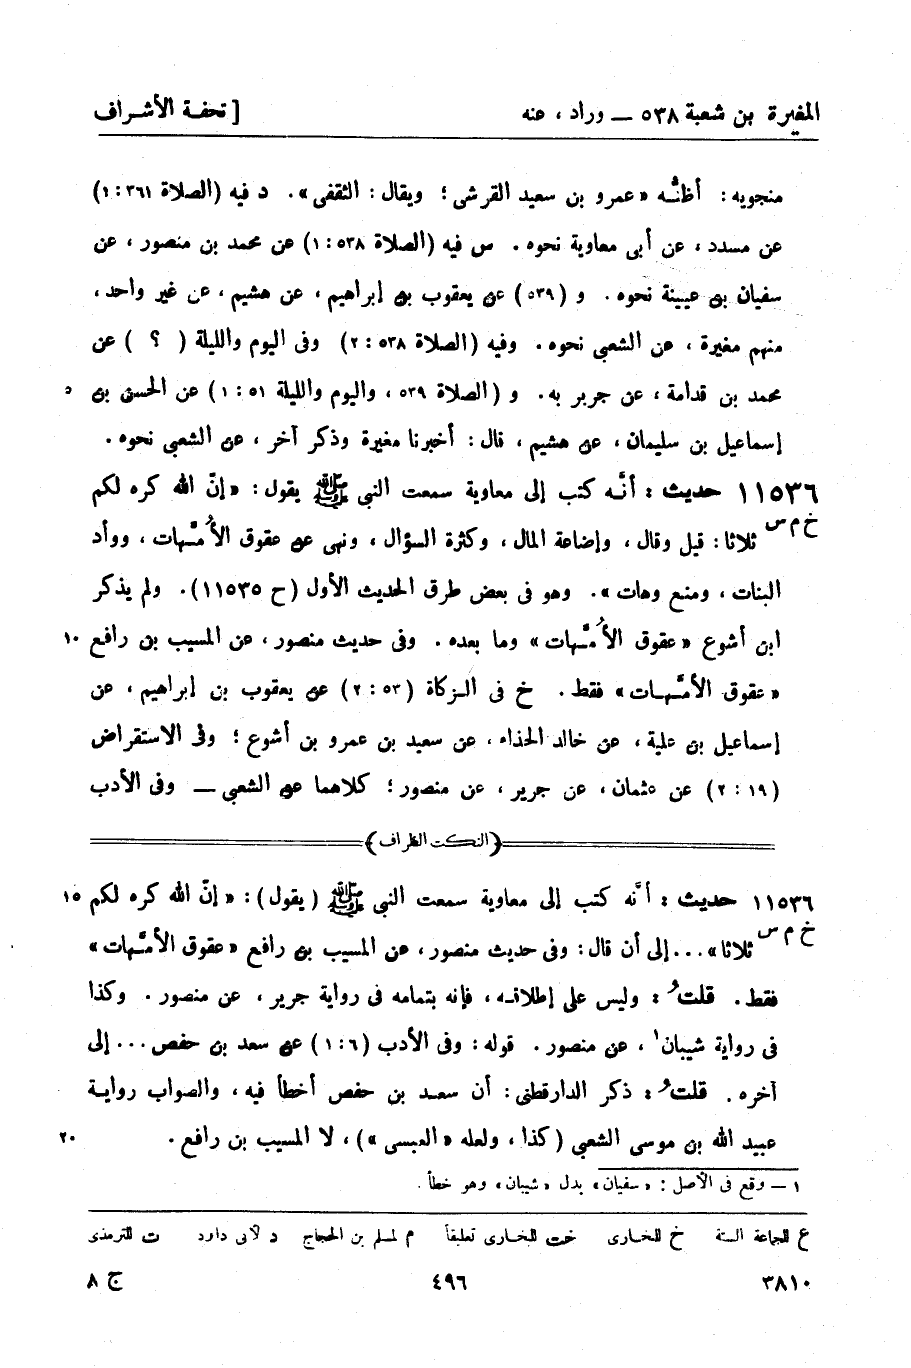 المغيرة بن شعبة ٥٣٨ — وراد ، عنه [ تحفة الأشراف
منجويه : أظنُّه «عمرو بن سعيد القرشى ؛ ويقال : الثقفى» . د فيه (الصلاة ٣٦١ : ١)
عن مسدد ، عن أبى معاوية نحوه . س فيه (الصلاة ٥٣٨ : ١) عن محمد بن منصور ، عن
سفيان بن عيينة نحوه . و (٥٣٩) عن يعقوب بن إبراهيم ، عن هشيم ، عن غير واحد ،
منهم مغيرة ، عن الشعبي نحوه . وفيه (الصلاة ٥٣٨ : ٢) وفى اليوم والليلة ( ؟ ) عن
محمد بن قدامة ، عن جرير به . و (الصلاة ٥٣٩ ، واليوم والليلة ٥١ : ١) عن الحسن بن ٥
إسماعيل بن سليمان ، عن هشيم ، قال : أخبرنا مغيرة وذكر آخر ، عن الشعبي نحوه .
١١٥٣٦ حديث : أنَّه كتب إلى معاوية سمعت النبي ﷺ يقول : «إنّ الله كره لكم
خ م س ثلاثا : قيل وقال ، وإضاعة المال ، وكثرة السؤال ، ونهى عن عقوق الأُمَّهات ، ووأد
البنات ، ومنع وهات» . وهو فى بعض طرق الحديث الأول (ح ١١٥٣٥) . ولم يذكر
ابن أشوع «عقوق الأُمَّهات» وما بعده . وفى حديث منصور ، عن المسيب بن رافع ١٠
«عقوق الأمَّهات» فقط . خ فى الزكاة (٥٣ : ٢) عن يعقوب بن إبراهيم ، عن
إسماعيل بن علية ، عن خالد الحذاء ، عن سعيد بن عمرو بن أشوع ؛ وفى الاستقراض
(١٩ : ٢) عن عثمان ، عن جرير ، عن منصور ؛ كلاهما عن الشعبي — وفى الأدب
(النكت الظراف)
١١٥٣٦ حديث : أنَّه كتب إلى معاوية سمعت النبي ﷺ (يقول) : «إنّ الله كره لكم ١٥
خ م س ثلاثا» ... إلى أن قال : وفى حديث منصور ، عن المسيب بن رافع «عقوق الأمَّهات»
فقط . قلتُ : وليس على إطلاقه ، فإنه بتمامه فى رواية جرير ، عن منصور . وكذا
فى رواية شيبان ١ ، عن منصور . قوله : وفى الأدب (٦ : ١) عن سعد بن حفص ... إلى
آخره . قلتُ : ذكر الدارقطنى : أن سعد بن حفص أخطأ فيه ، والصواب رواية
عبيد الله بن موسى الشعبي (كذا ، ولعله «العبسى») ، لا المسيب بن رافع . ٢٠
١ — وقع فى الأصل : «سفيان» بدل «شيبان» وهو خطأ .
ع للجماعة الستة خ للبخارى خت للبخارى تعليقاً م لمسلم بن الحجاج د لأبى داود ت للترمذى
٣٨١٠ ٤٩٦ ج ٨